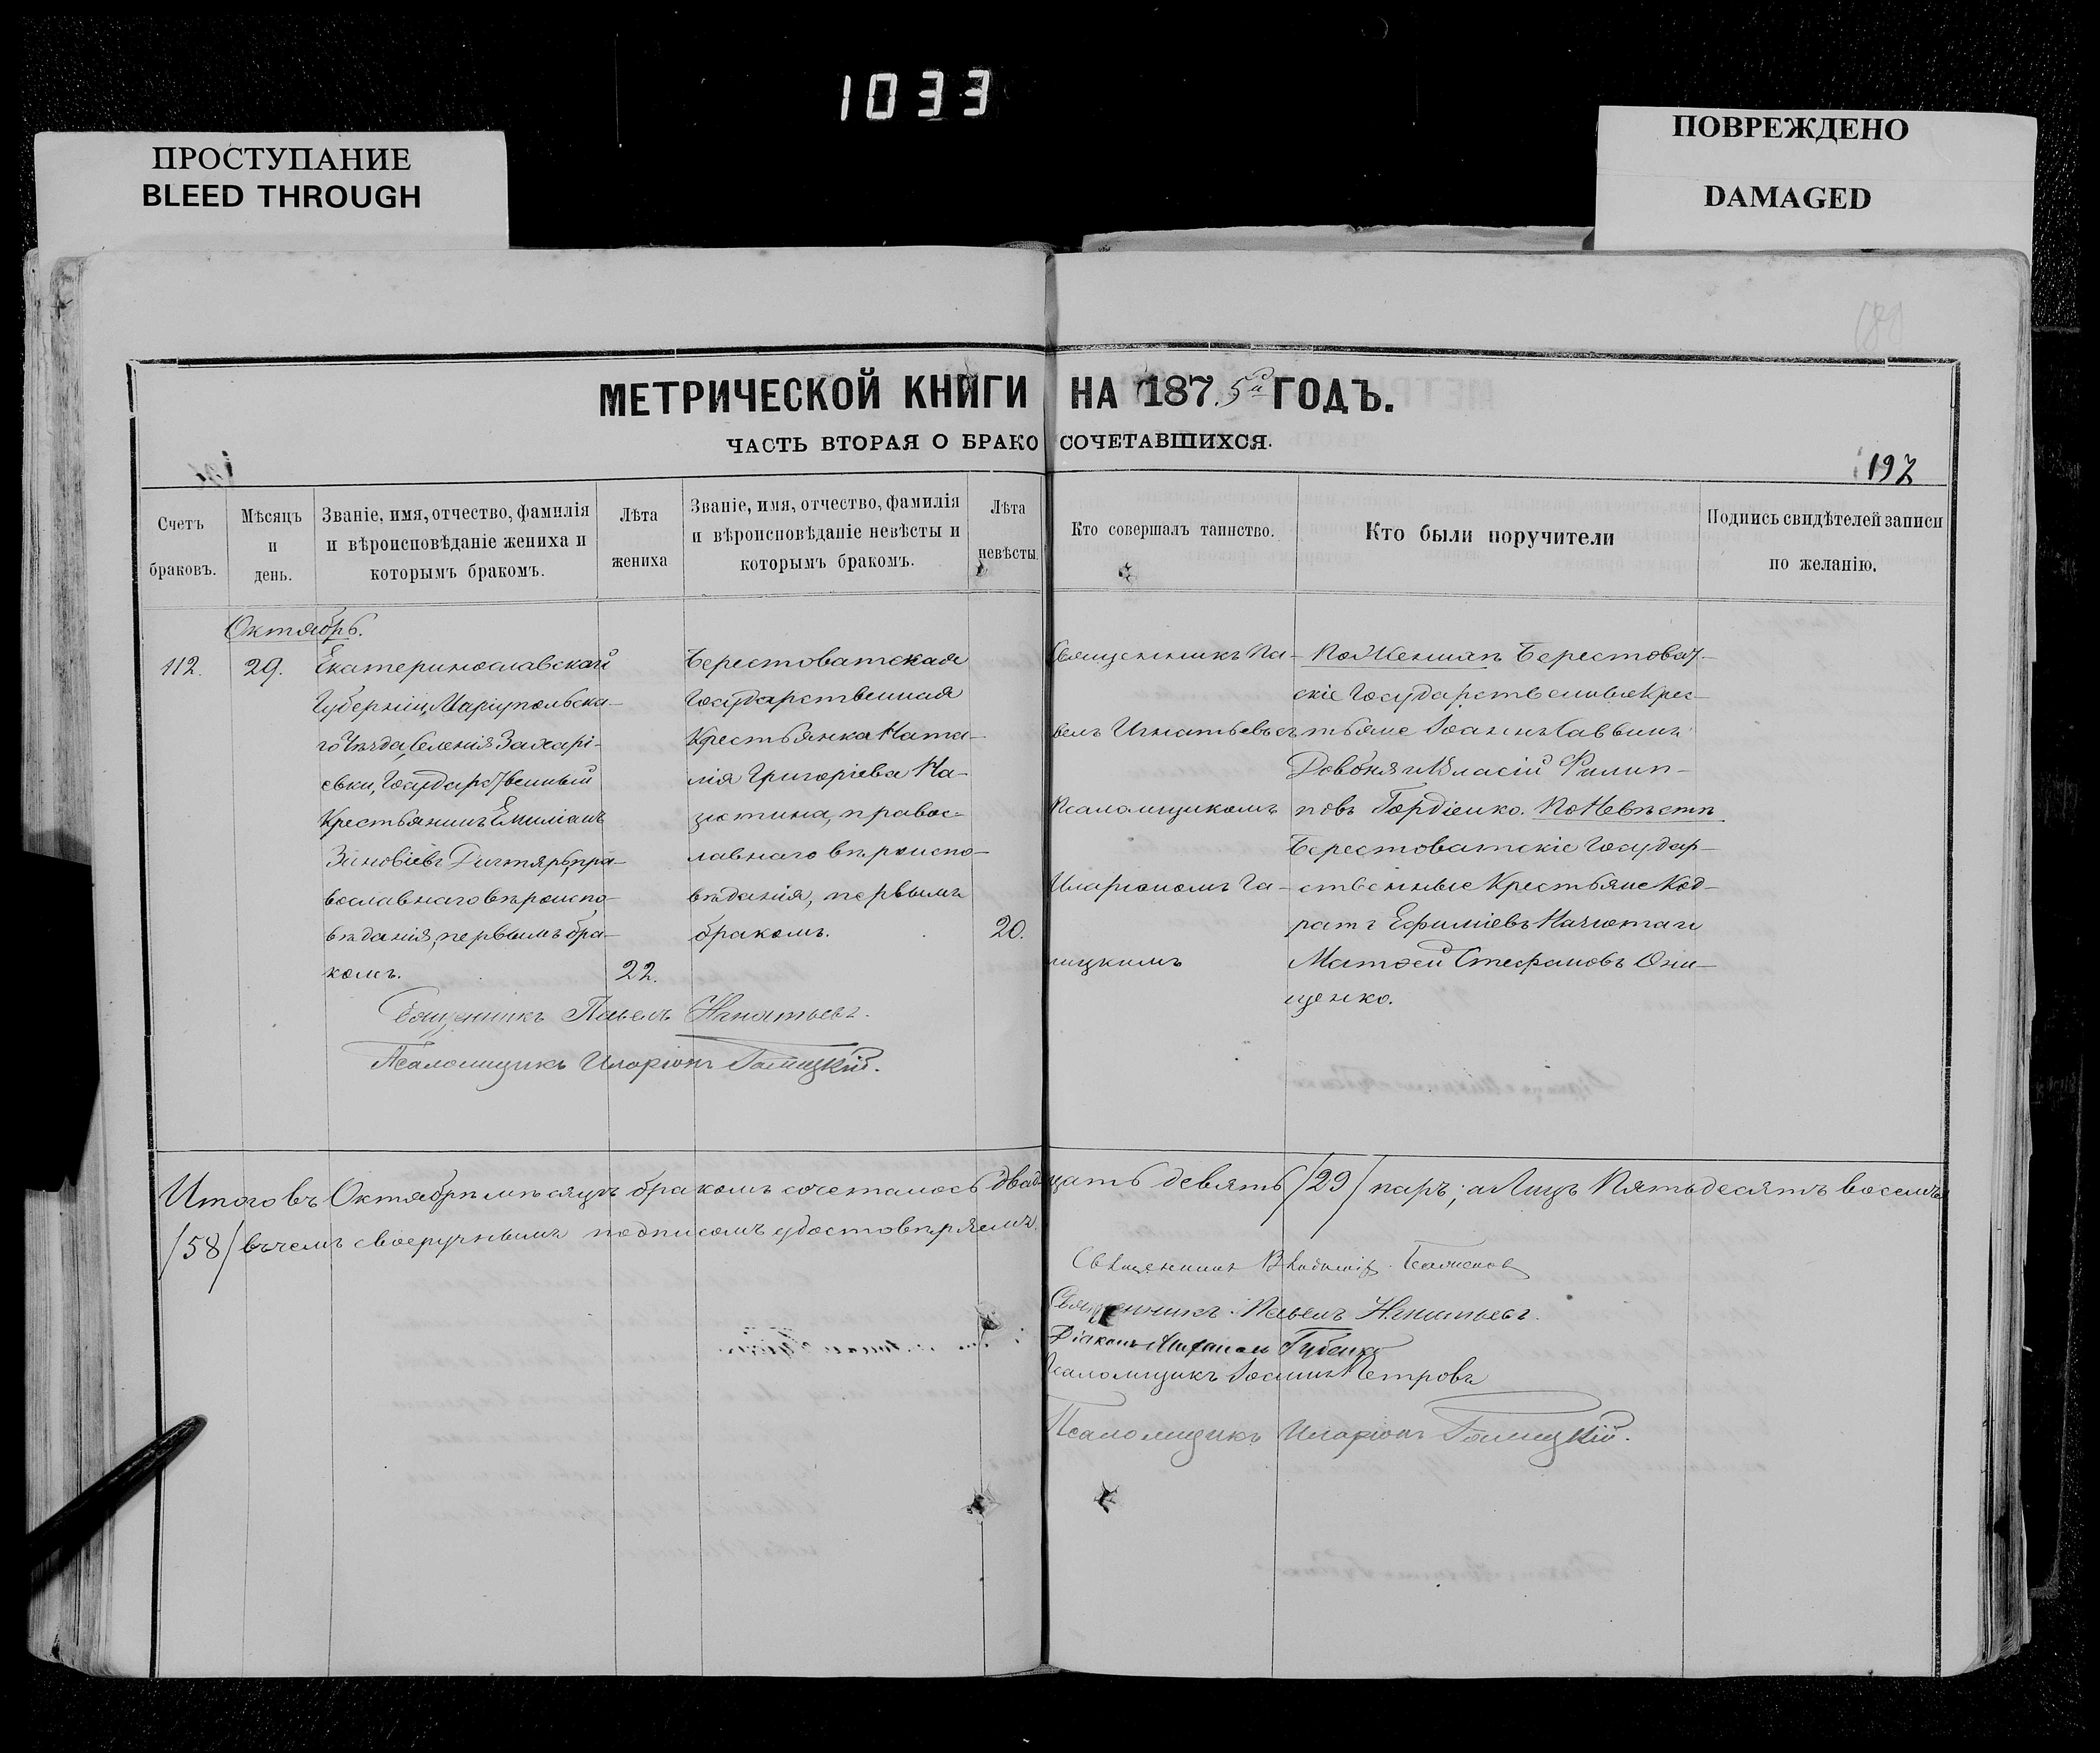 1033
ПРОСТУПАНИЕ
BLEED THROUGH
ПОВРЕЖДЕНО
DAMAGED
МЕТРИЧЕСКОЙ КНИГИ НА 1875й ГОДЪ.
ЧАСТЬ ВТОРАЯ О БРАКОСОЧЕТАВШИХСЯ.
197
Счетъ
браковъ.
Мѣсяцъ
и
день.
Званіе, имя, отчество, фамилія
и вѣроисповѣданіе жениха и
которымъ бракомъ.
Лѣта
жениха
Званіе, имя, отчество, фамилія
и вѣроисповѣданіе невѣсты и
которымъ бракомъ.
Лѣта
невѣсты.
Кто совершалъ таинство.
Кто были поручители
Подпись свидѣтелей записи
по желанію.
Октябрь.
112.
29.
Екатеринославской
Губерніи, Маріупольска-
го Уѣзда, Селенія Захарі-
евки, Государственный
Крестьянинъ Емиліанъ
Зиновіевъ Дигтярь, пра-
вославнаго вѣроиспо-
вѣданія, первымъ бра-
комъ.
22.
Берестоватская
Государственная
Крестьянка Ната-
лія Григоріева На-
, правос-
лавнаго вѣроиспо-
вѣданія, первымъ
бракомъ.
20.
Священникъ Па-
велъ Игнатьевъ съ
Псаломщикомъ
Иларіономъ Га-
лицкимъ
По Женихѣ Берестоват-
скіе Государственные Крес-
тьяне Іоаннъ Саввинъ
Довбня и Власій Филип-
повъ Гордіенко. По Невѣстѣ
Берестоватскіе Государ-
ственные Крестьяне Код-
ратъ Ефиміевъ и
Матѳей Стефановъ Они-
щенко.
Священникъ Павелъ Игнатьевъ.
Псаломщикъ Иларіонъ Галицкій.
Итого въ Октябрѣ мѣсяцѣ бракомъ сочеталось двадцать девять /29/ паръ; а Лицъ Пятьдесятъ восемь
/58/ въ чемъ своеручнымъ подписомъ удостовѣряемъ.
Священникъ Владиміръ
Священникъ Павелъ Игнатьевъ.
Діаконъ Губенко
Псаломщикъ Іоаннъ Петровъ
Псаломщикъ Иларіонъ Галицкій.